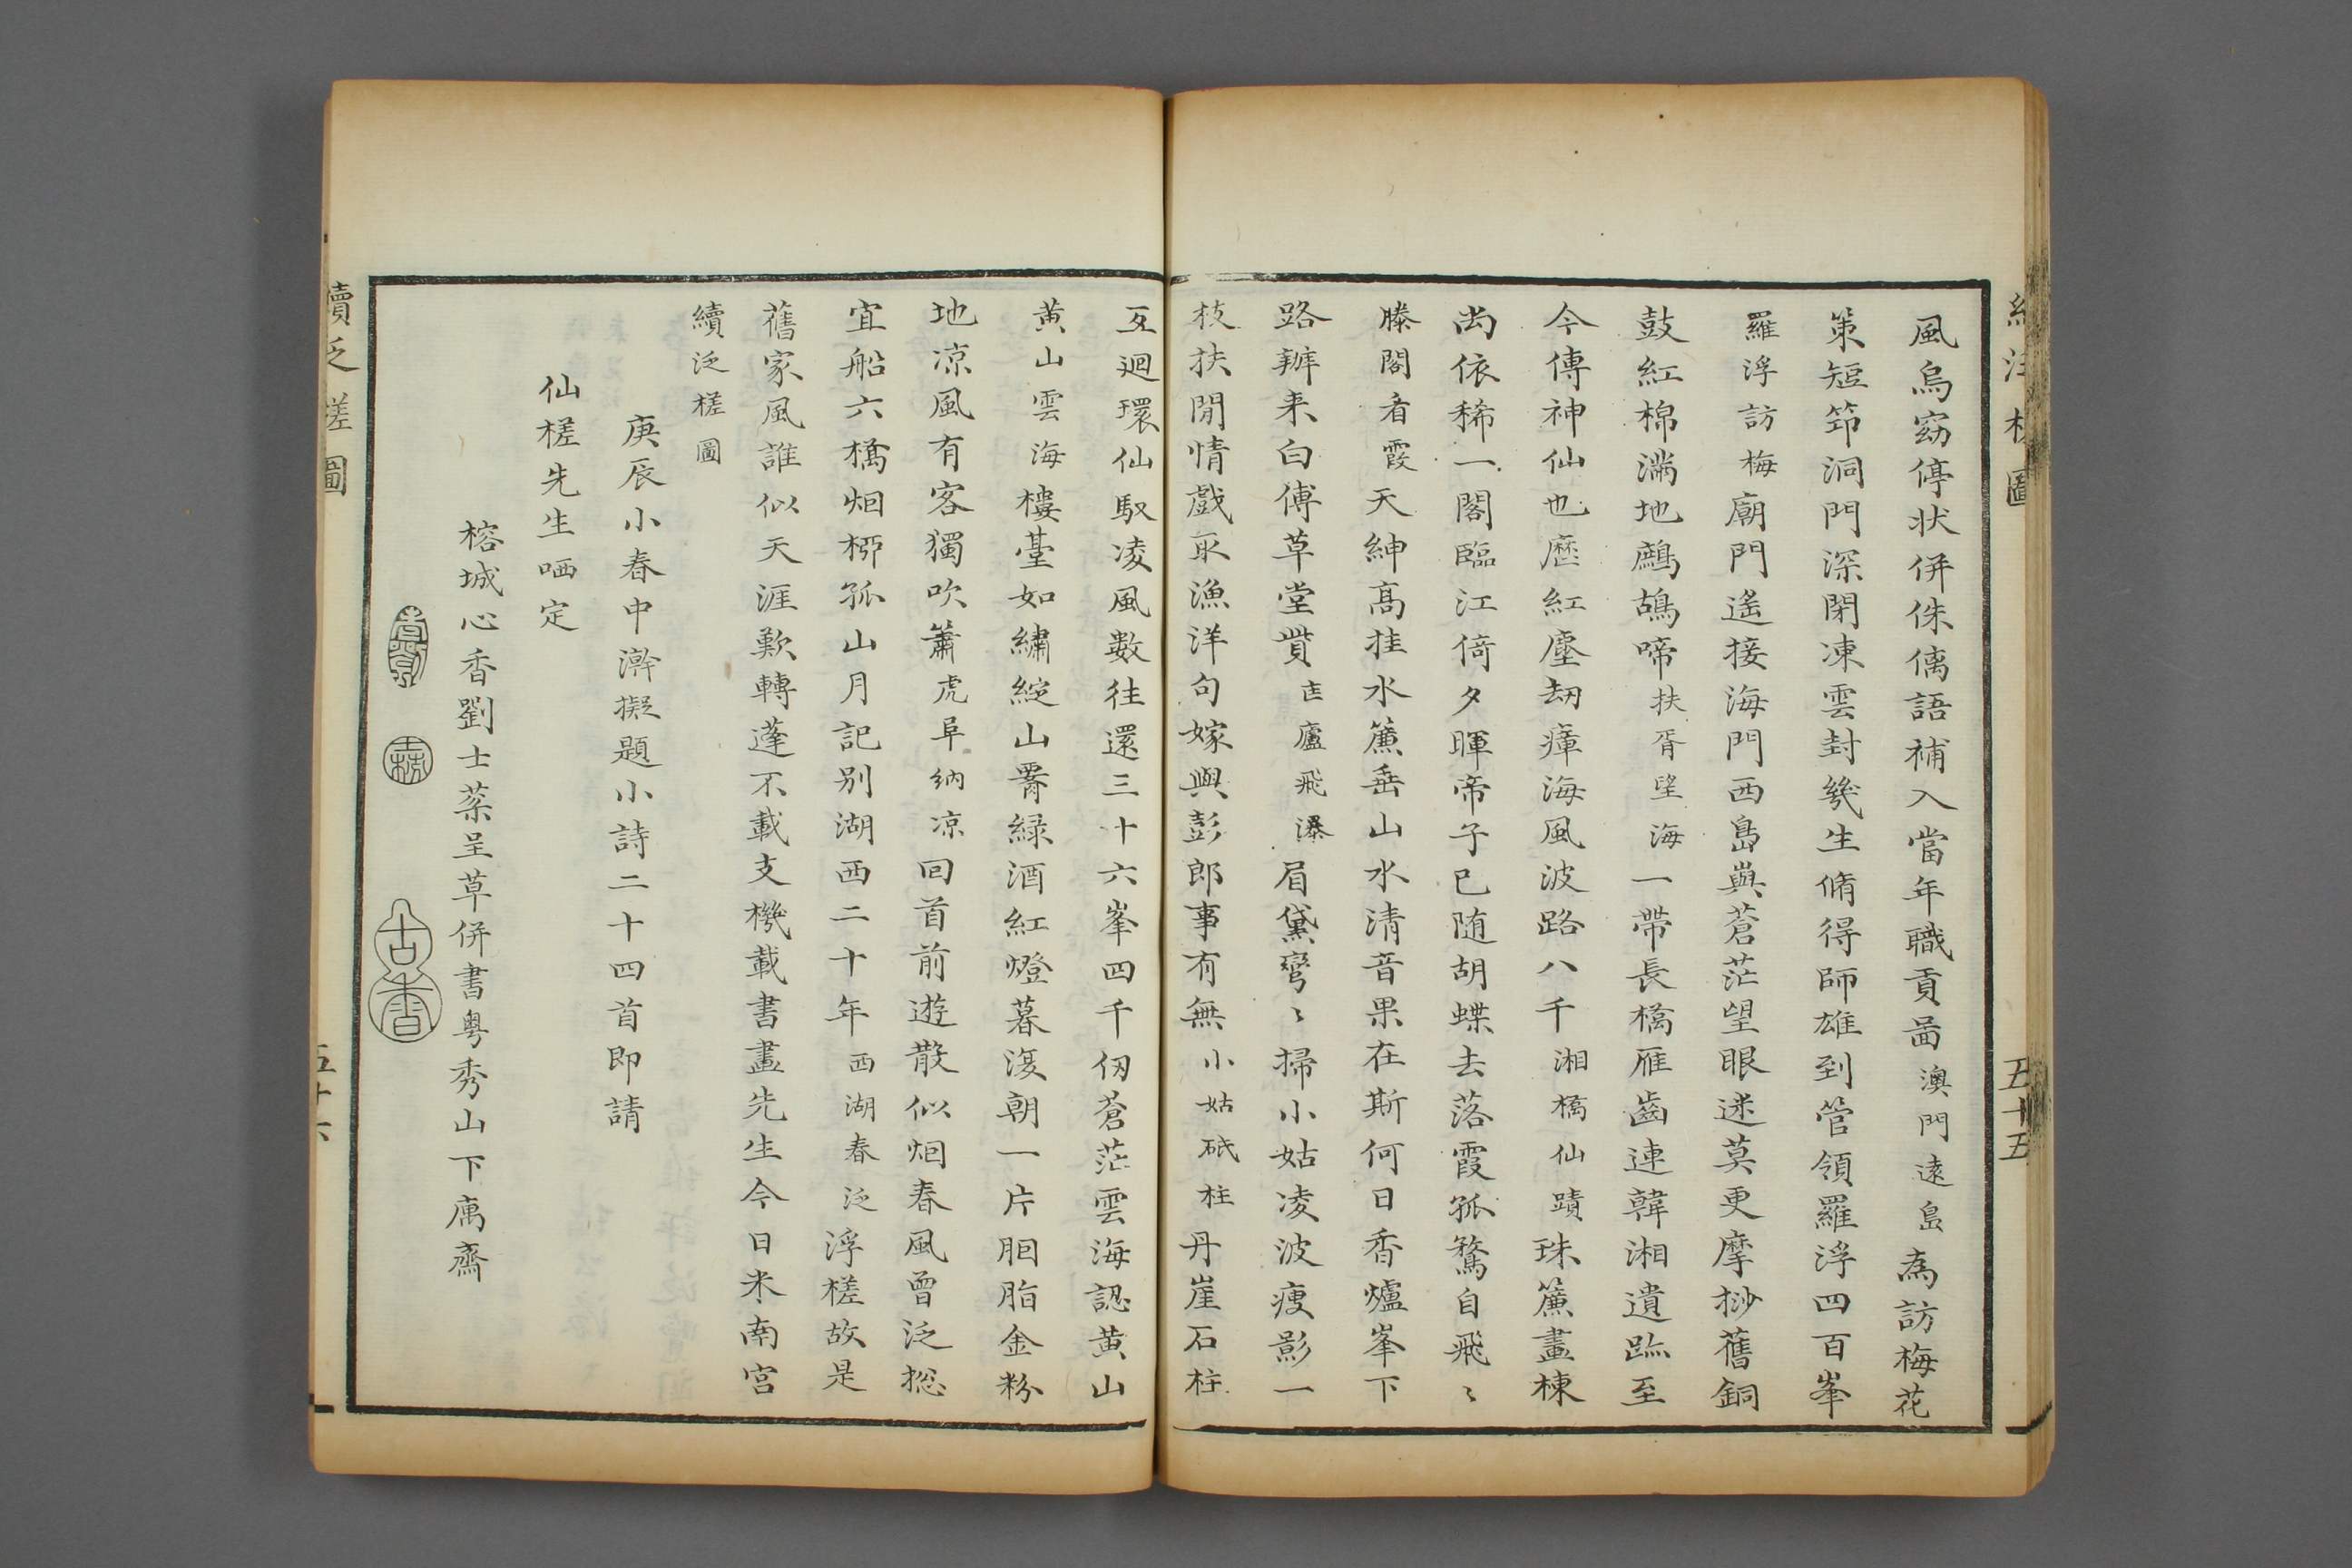 風烏窈停状併侏𠌯語補入當年職貢啚澳門遠島為訪梅花
策短筇洞門深閉凍雲封幾生脩得師雄到管領羅浮四百峯
羅浮訪梅廟門遙接海門西島與蒼茫望眼迷莫更摩挱舊銅
鼓紅棉滿地鷓鴣啼扶胥望海一帶長橋雁齒連韓湘遺跡至
今傳神仙也歷紅塵劫瘴海風波路八千湘橋仙蹟珠簾畫棟
尚依稀一閣臨江倚夕暉帝子已随胡蝶去落霞孤鶩自飛〻
滕閣看霞天紳高挂水簾垂山水清音果在斯何日香爐峯下
路辦来白傅草堂貲匡廬飛瀑眉黛彎〻掃小姑凌波瘦影一
枝扶閒情戲取漁洋句嫁與彭郎事有無小姑砥柱丹崖石柱
互迴環仙馭凌風数往還三十六峯四千仞蒼茫雲海認黃山
黃山雲海樓臺如繡綻山罨綠酒紅燈暮復朝一片胭脂金粉
地凉風有客獨吹簫虎阜納凉回首前遊散似烟春風曾泛総
宜船六橋烟栁孤山月記别湖西二十年西湖春泛浮槎故是
舊家風誰似天涯歎轉蓬不載支機載書畫先生今日米南宮
續泛槎圖
庚辰小春中澣擬題小詩二十四首即請
仙槎先生哂定
榕城心香劉士棻呈草併書粤秀山下庽齋
古香
續泛槎圖
五十六
五十五